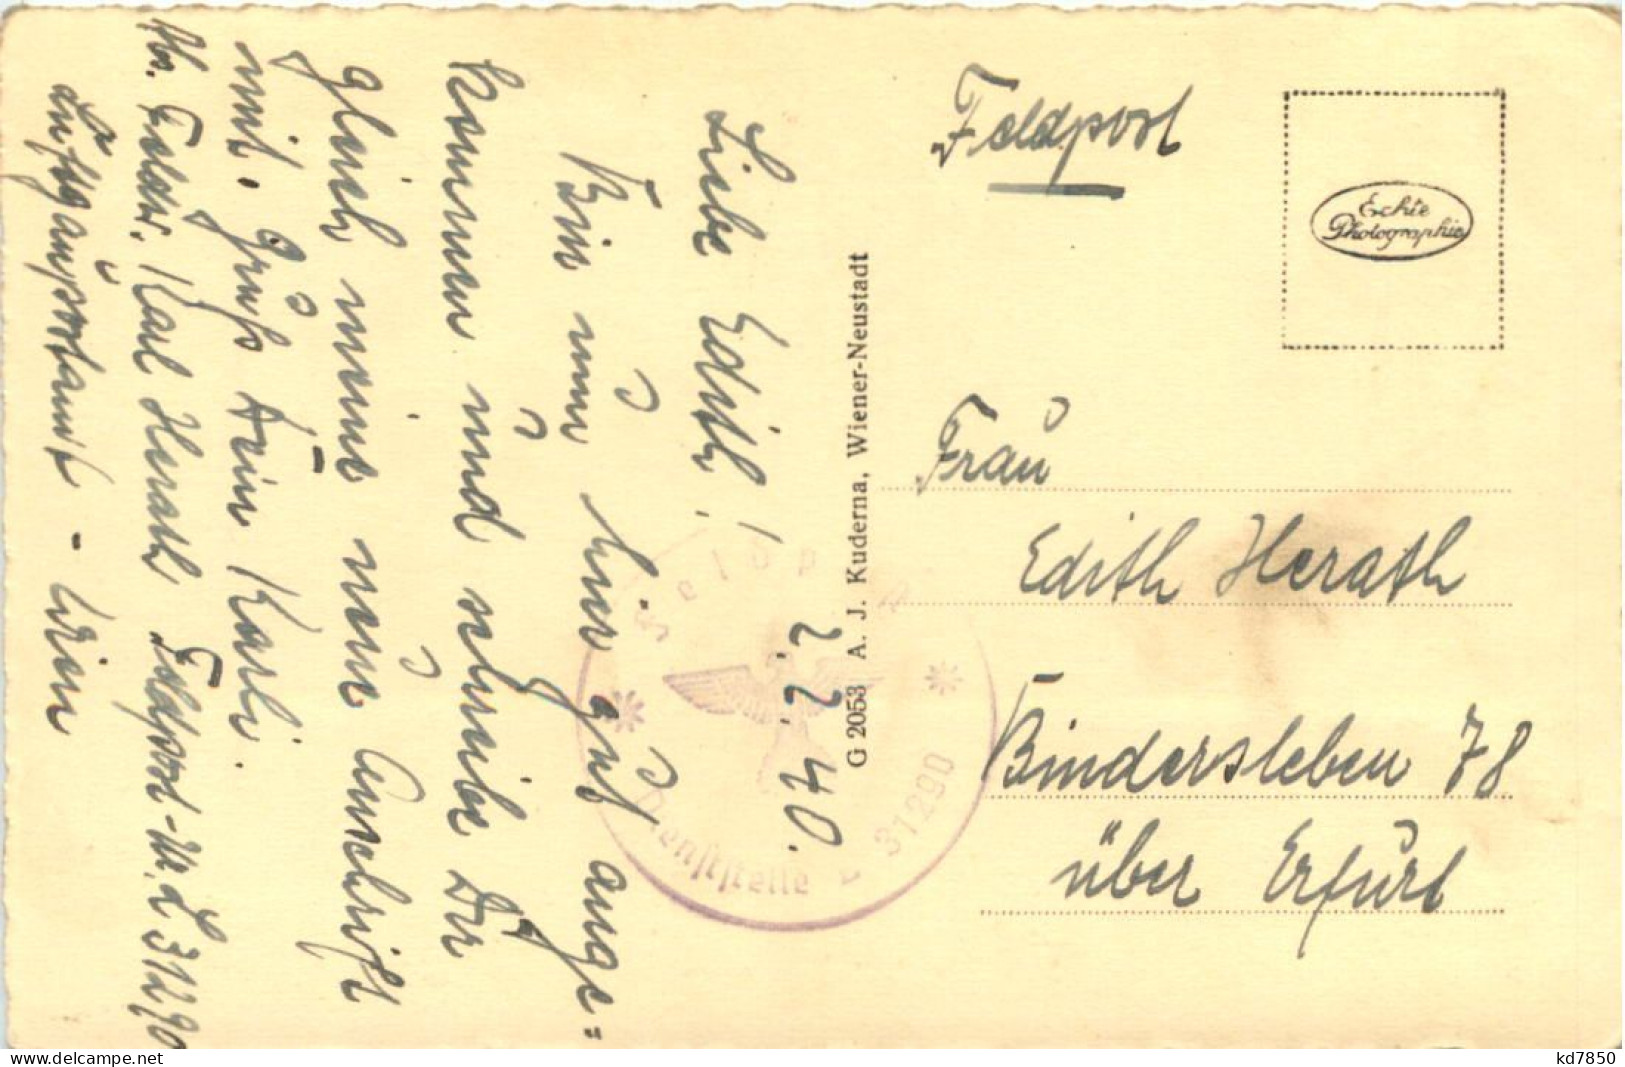 Feldpost
Echte
Photographie
Frau
Edith Herath
Bindersleben 78
über Erfurt
G 2053 A. J. Kuderna, Wiener-Neustadt
2. 2. 40.
Liebe Edith!
Bin nun hier gut ange=
kommen und schreibe Dir
gleich meine neue Anschrift
mit. Gruß Dein Karli.
Abs. Karl Herath Feldpost-Nr. L 31290
Luftgaupostamt - Wien
Feldpost
Dienststelle L 31290
www.delcampe.net
kd7850